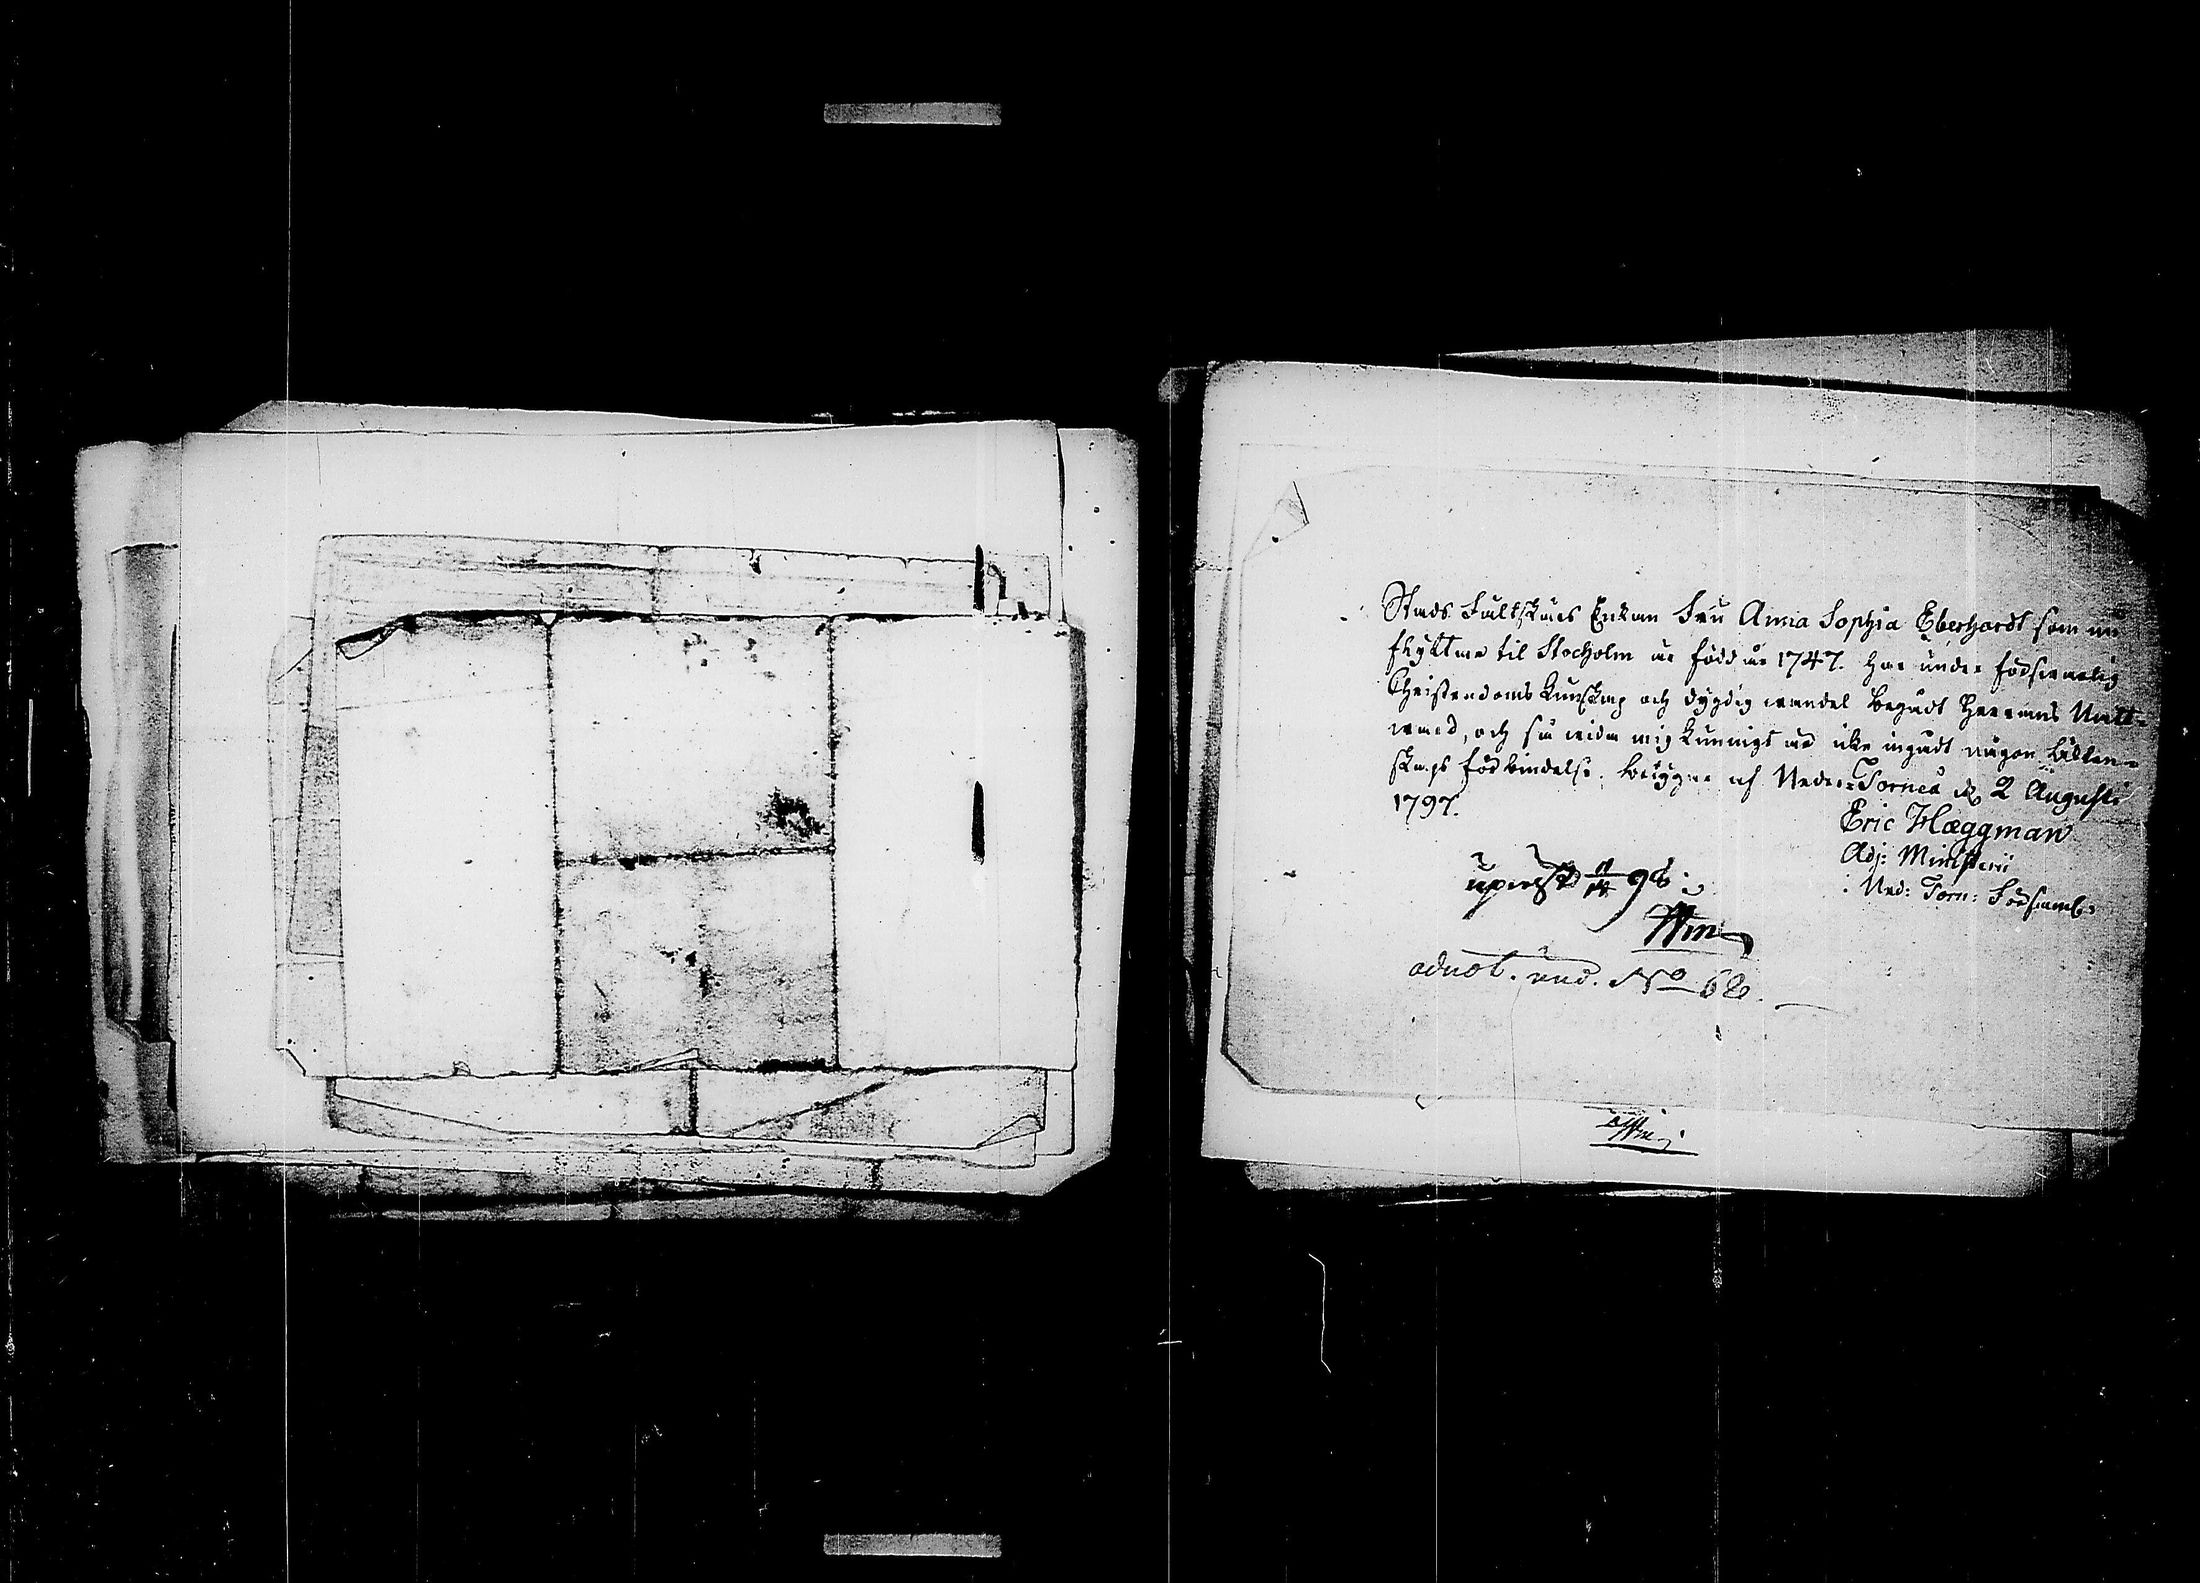 Stads Fältskärs Enkan Fru Anna Sophia Eberhardt som nu
flyttar til Stocholm är född år 1747. Har under försvarlig
Christendoms kunskap och dygdig wandel begådt Herrans Natt-
ward, och så vida mig kunnigt är icke ingådt någon ächten-
skaps förbindelse, betygar af Neder-Torneå d. 2 Augusti
1797.
Eric Hæggman
Adj: Ministerii
Ned: Torn: Församl:
upvist 98
adnot. und. No 68.